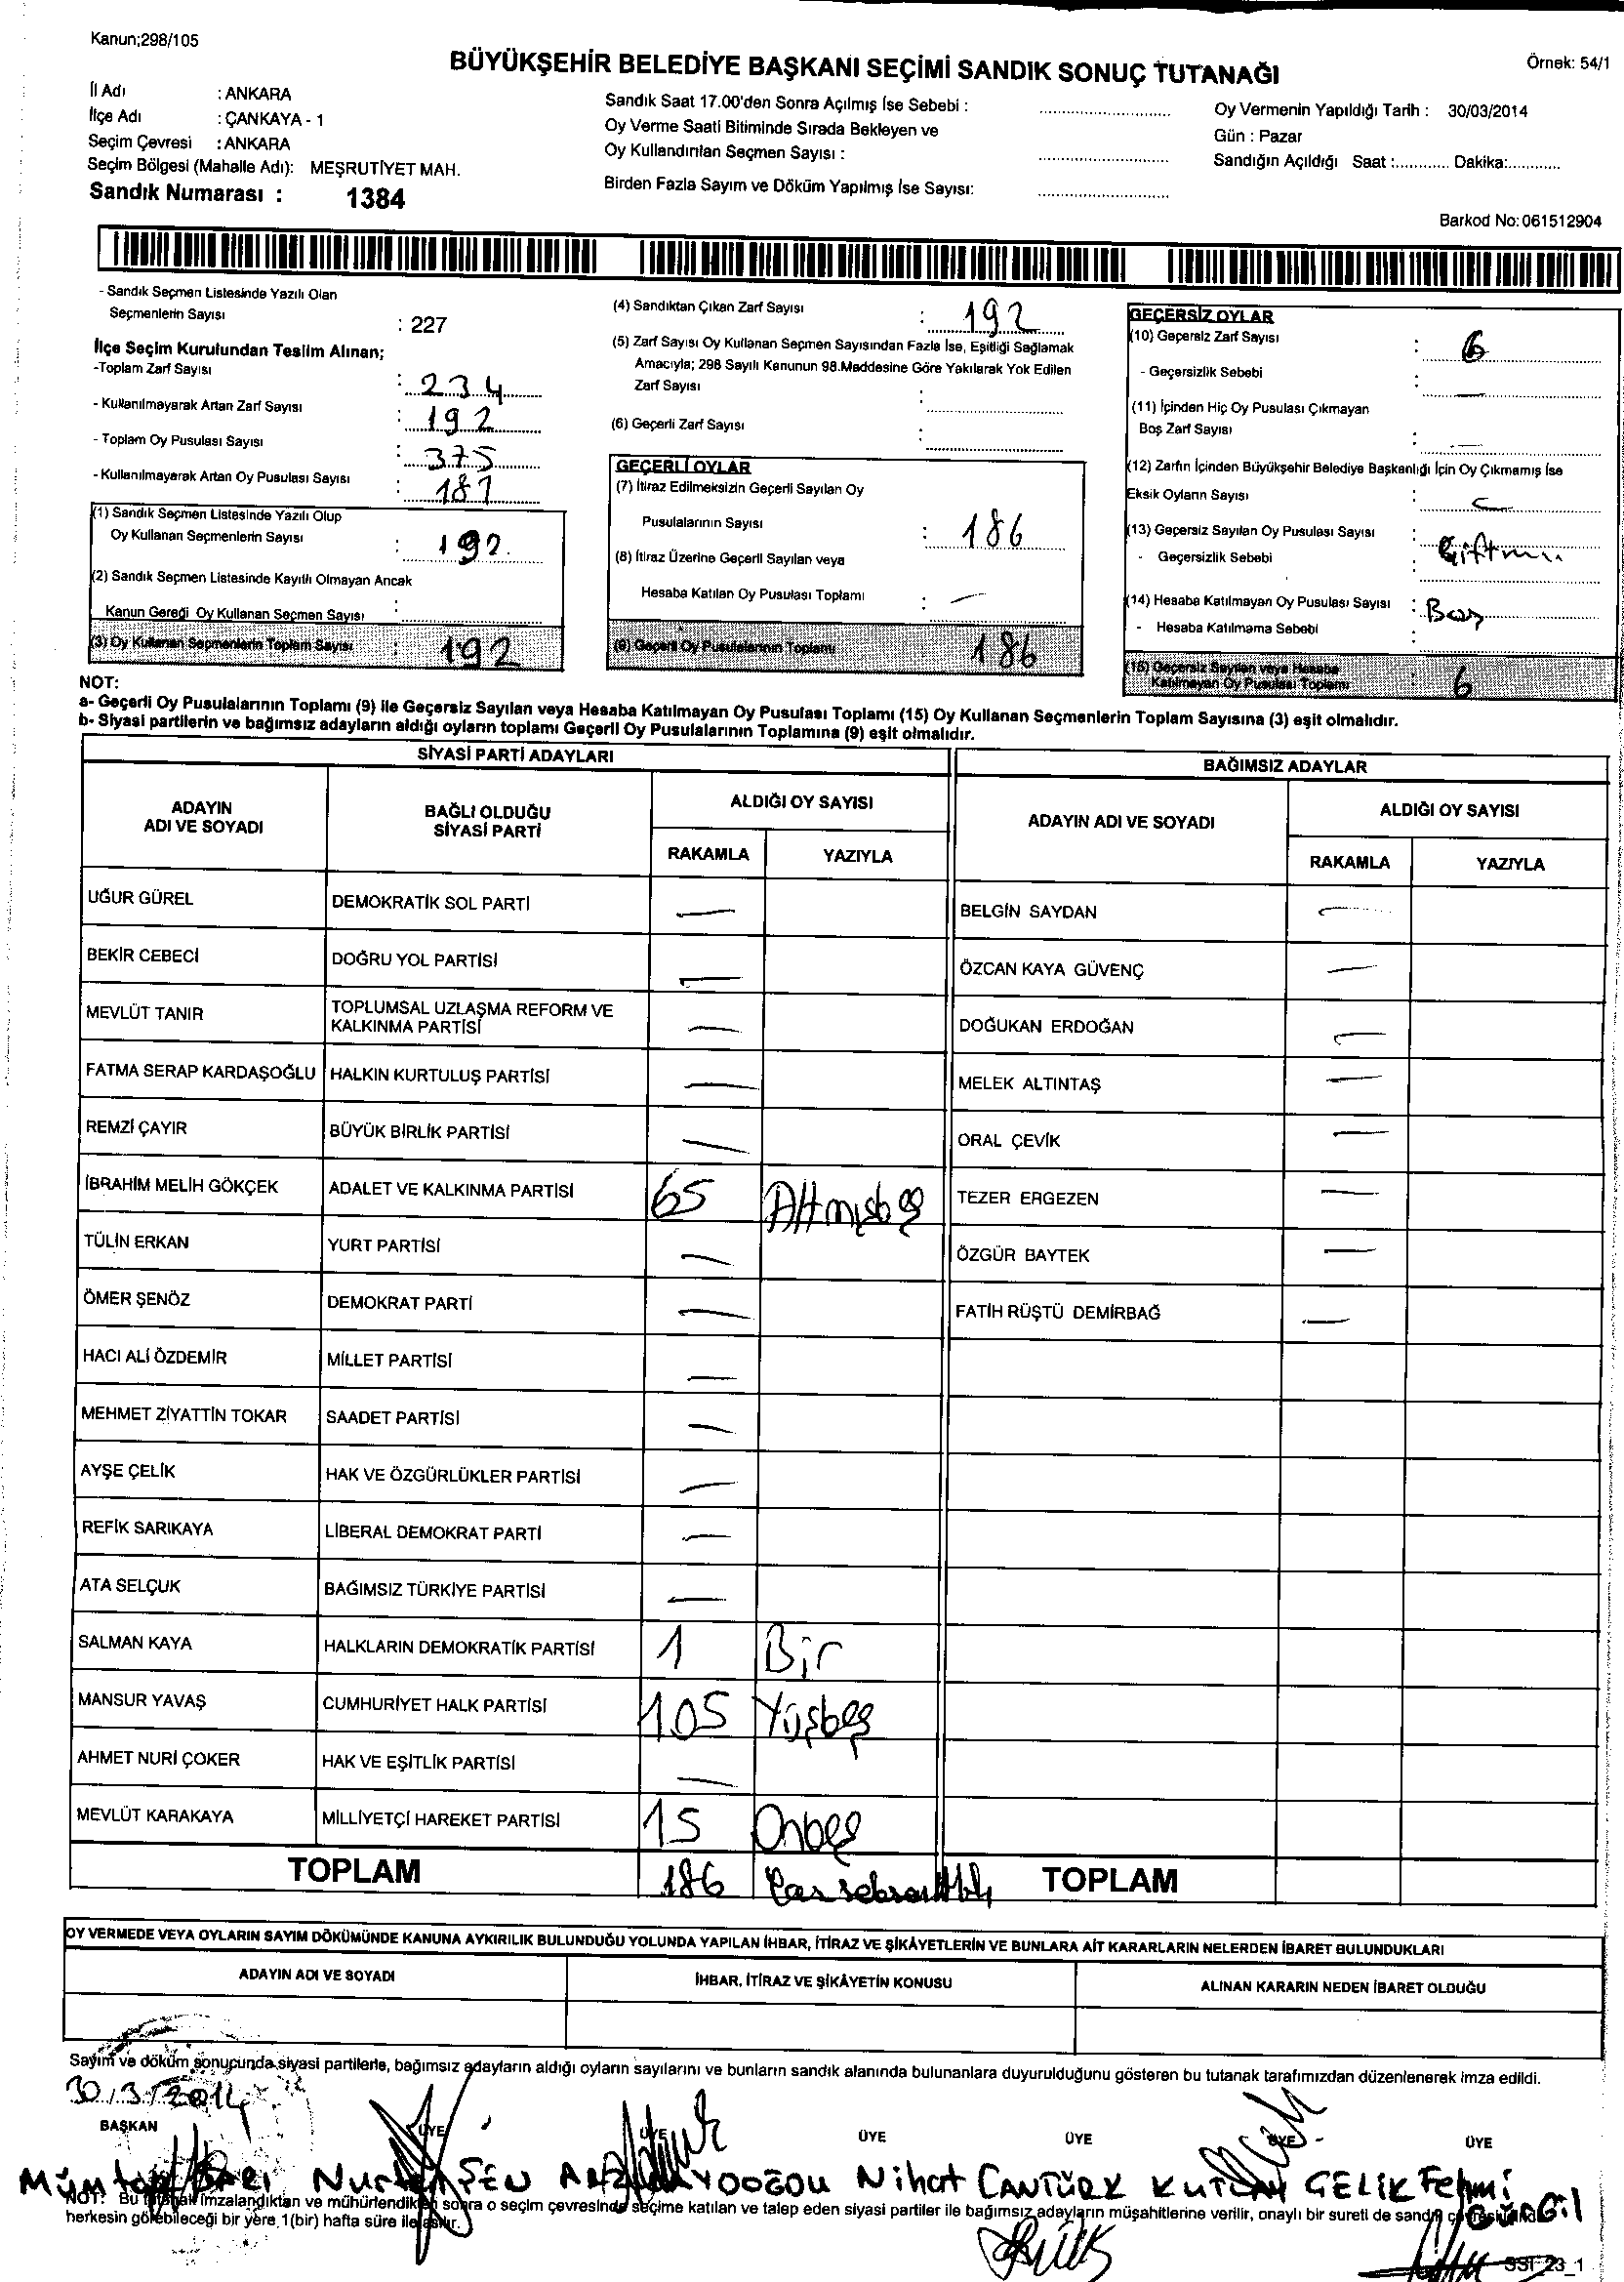 Kanun;298/105
BÜYÜKŞEHİR BELEDİYE BAŞKANI SEÇİMİ SANDIK SONUÇ TUTANAĞI
Örnek: 54/1
İl Adı : ANKARA
İlçe Adı : ÇANKAYA - 1
Seçim Çevresi : ANKARA
Seçim Bölgesi (Mahalle Adı): MEŞRUTİYET MAH.
Sandık Numarası : 1384
Sandık Saat 17.00'den Sonra Açılmış İse Sebebi :
Oy Verme Saati Bitiminde Sırada Bekleyen ve
Oy Kullandırılan Seçmen Sayısı :
Birden Fazla Sayım ve Döküm Yapılmış İse Sayısı:
Oy Vermenin Yapıldığı Tarih : 30/03/2014
Gün : Pazar
Sandığın Açıldığı Saat :............ Dakika:............
Barkod No: 061512904
- Sandık Seçmen Listesinde Yazılı Olan
Seçmenlerin Sayısı : 227
İlçe Seçim Kurulundan Teslim Alınan;
-Toplam Zarf Sayısı : 234
- Kullanılmayarak Artan Zarf Sayısı : 192
- Toplam Oy Pusulası Sayısı : 375
- Kullanılmayarak Artan Oy Pusulası Sayısı : 181
(1) Sandık Seçmen Listesinde Yazılı Olup
Oy Kullanan Seçmenlerin Sayısı : 192
(2) Sandık Seçmen Listesinde Kayıtlı Olmayan Ancak
Kanun Gereği Oy Kullanan Seçmen Sayısı :
(3) Oy Kullanan Seçmenlerin Toplam Sayısı : 192
(4) Sandıktan Çıkan Zarf Sayısı : 192
(5) Zarf Sayısı Oy Kullanan Seçmen Sayısından Fazla İse, Eşitliği Sağlamak
Amacıyla; 298 Sayılı Kanunun 98.Maddesine Göre Yakılarak Yok Edilen
Zarf Sayısı :
(6) Geçerli Zarf Sayısı :
GEÇERLİ OYLAR
(7) İtiraz Edilmeksizin Geçerli Sayılan Oy
Pusulalarının Sayısı : 186
(8) İtiraz Üzerine Geçerli Sayılan veya
Hesaba Katılan Oy Pusulası Toplamı : —
(9) Geçerli Oy Pusulalarının Toplamı 186
GEÇERSİZ OYLAR
(10) Geçersiz Zarf Sayısı : 6
- Geçersizlik Sebebi : —
(11) İçinden Hiç Oy Pusulası Çıkmayan
Boş Zarf Sayısı : —
(12) Zarfın İçinden Büyükşehir Belediye Başkanlığı İçin Oy Çıkmamış İse
Eksik Oyların Sayısı : —
(13) Geçersiz Sayılan Oy Pusulası Sayısı :
- Geçersizlik Sebebi
(14) Hesaba Katılmayan Oy Pusulası Sayısı : Boş
- Hesaba Katılmama Sebebi :
(15) Geçersiz Sayılan veya Hesaba
Katılmayan Oy Pusulası Toplamı : 6
NOT:
a- Geçerli Oy Pusulalarının Toplamı (9) ile Geçersiz Sayılan veya Hesaba Katılmayan Oy Pusulası Toplamı (15) Oy Kullanan Seçmenlerin Toplam Sayısına (3) eşit olmalıdır.
b- Siyasi partilerin ve bağımsız adayların aldığı oyların toplamı Geçerli Oy Pusulalarının Toplamına (9) eşit olmalıdır.
SİYASİ PARTİ ADAYLARI
ADAYIN ADI VE SOYADI
BAĞLI OLDUĞU SİYASİ PARTİ
ALDIĞI OY SAYISI
RAKAMLA YAZIYLA
UĞUR GÜREL DEMOKRATİK SOL PARTİ —
BEKİR CEBECİ DOĞRU YOL PARTİSİ —
MEVLÜT TANIR TOPLUMSAL UZLAŞMA REFORM VE KALKINMA PARTİSİ —
FATMA SERAP KARDAŞOĞLU HALKIN KURTULUŞ PARTİSİ —
REMZİ ÇAYIR BÜYÜK BİRLİK PARTİSİ —
İBRAHİM MELİH GÖKÇEK ADALET VE KALKINMA PARTİSİ 65 Altmışbeş
TÜLİN ERKAN YURT PARTİSİ —
ÖMER ŞENÖZ DEMOKRAT PARTİ —
HACI ALİ ÖZDEMİR MİLLET PARTİSİ —
MEHMET ZİYATTİN TOKAR SAADET PARTİSİ —
AYŞE ÇELİK HAK VE ÖZGÜRLÜKLER PARTİSİ —
REFİK SARIKAYA LİBERAL DEMOKRAT PARTİ —
ATA SELÇUK BAĞIMSIZ TÜRKİYE PARTİSİ —
SALMAN KAYA HALKLARIN DEMOKRATİK PARTİSİ 1 Bir
MANSUR YAVAŞ CUMHURİYET HALK PARTİSİ 105 Yüşbeş
AHMET NURİ ÇOKER HAK VE EŞİTLİK PARTİSİ —
MEVLÜT KARAKAYA MİLLİYETÇİ HAREKET PARTİSİ 15 Onbeş
TOPLAM 186
BAĞIMSIZ ADAYLAR
ADAYIN ADI VE SOYADI
ALDIĞI OY SAYISI
RAKAMLA YAZIYLA
BELGİN SAYDAN —
ÖZCAN KAYA GÜVENÇ —
DOĞUKAN ERDOĞAN —
MELEK ALTINTAŞ —
ORAL ÇEVİK —
TEZER ERGEZEN —
ÖZGÜR BAYTEK —
FATİH RÜŞTÜ DEMİRBAĞ —
TOPLAM
OY VERMEDE VEYA OYLARIN SAYIM DÖKÜMÜNDE KANUNA AYKIRILIK BULUNDUĞU YOLUNDA YAPILAN İHBAR, İTİRAZ VE ŞİKÂYETLERİN VE BUNLARA AİT KARARLARIN NELERDEN İBARET BULUNDUKLARI
ADAYIN ADI VE SOYADI İHBAR, İTİRAZ VE ŞİKÂYETİN KONUSU ALINAN KARARIN NEDEN İBARET OLDUĞU
Sayım ve döküm sonucunda siyasi partilerle, bağımsız adayların aldığı oyların sayılarını ve bunların sandık alanında bulunanlara duyurulduğunu gösteren bu tutanak tarafımızdan düzenlenerek imza edildi.
30.3.2014
BAŞKAN ÜYE ÜYE ÜYE ÜYE ÜYE ÜYE
ŞEN Nihat CANTÜRK ÇELİK Fehmi
NOT: Bu tutanak imzalandıktan ve mühürlendikten sonra o seçim çevresinde seçime katılan ve talep eden siyasi partiler ile bağımsız adayların müşahitlerine verilir, onaylı bir sureti de sandık
herkesin görebileceği bir yere 1(bir) hafta süre ile asılır.